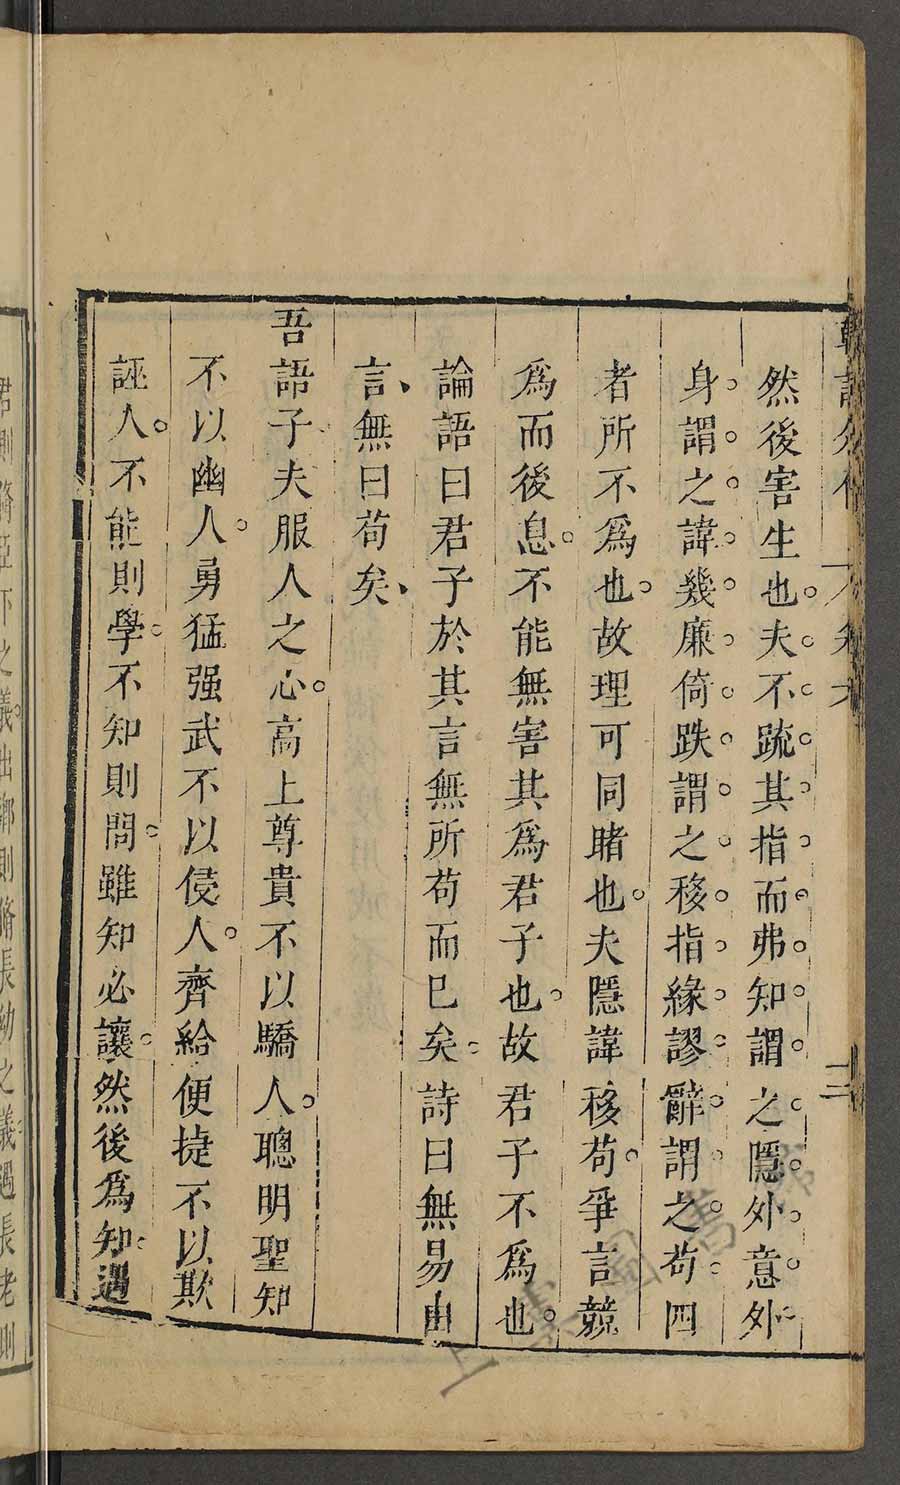 韓詩外傳 卷六 三
然後害生也夫不疏其指而弗知謂之隱外意外
身謂之諱幾廉倚跌謂之移指緣謬辭謂之苟四
者所不爲也故理可同睹也夫隱諱移苟爭言競
爲而後息不能無害其爲君子也故君子不爲也
論語曰君子於其言無所苟而已矣詩曰無易由
言無曰苟矣
吾語子夫服人之心高上尊貴不以驕人聰明聖知
不以幽人勇猛强武不以侵人齊給便捷不以欺
誣人不能則學不知則問雖知必讓然後爲知遇